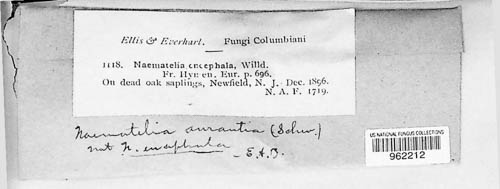 Ellis & Everhart. Fungi Columbiani
1118. Naematelia encephala, Willd.
Fr. Hymen, Eur. p. 696.
On dead oak saplings, Newfield, N. J. Dec. 1896.
N. A. F. 1719.
Naematelia aurantia (Schw.)
not N. encephala
E.A.B.
US NATIONAL FUNGUS COLLECTIONS
962212